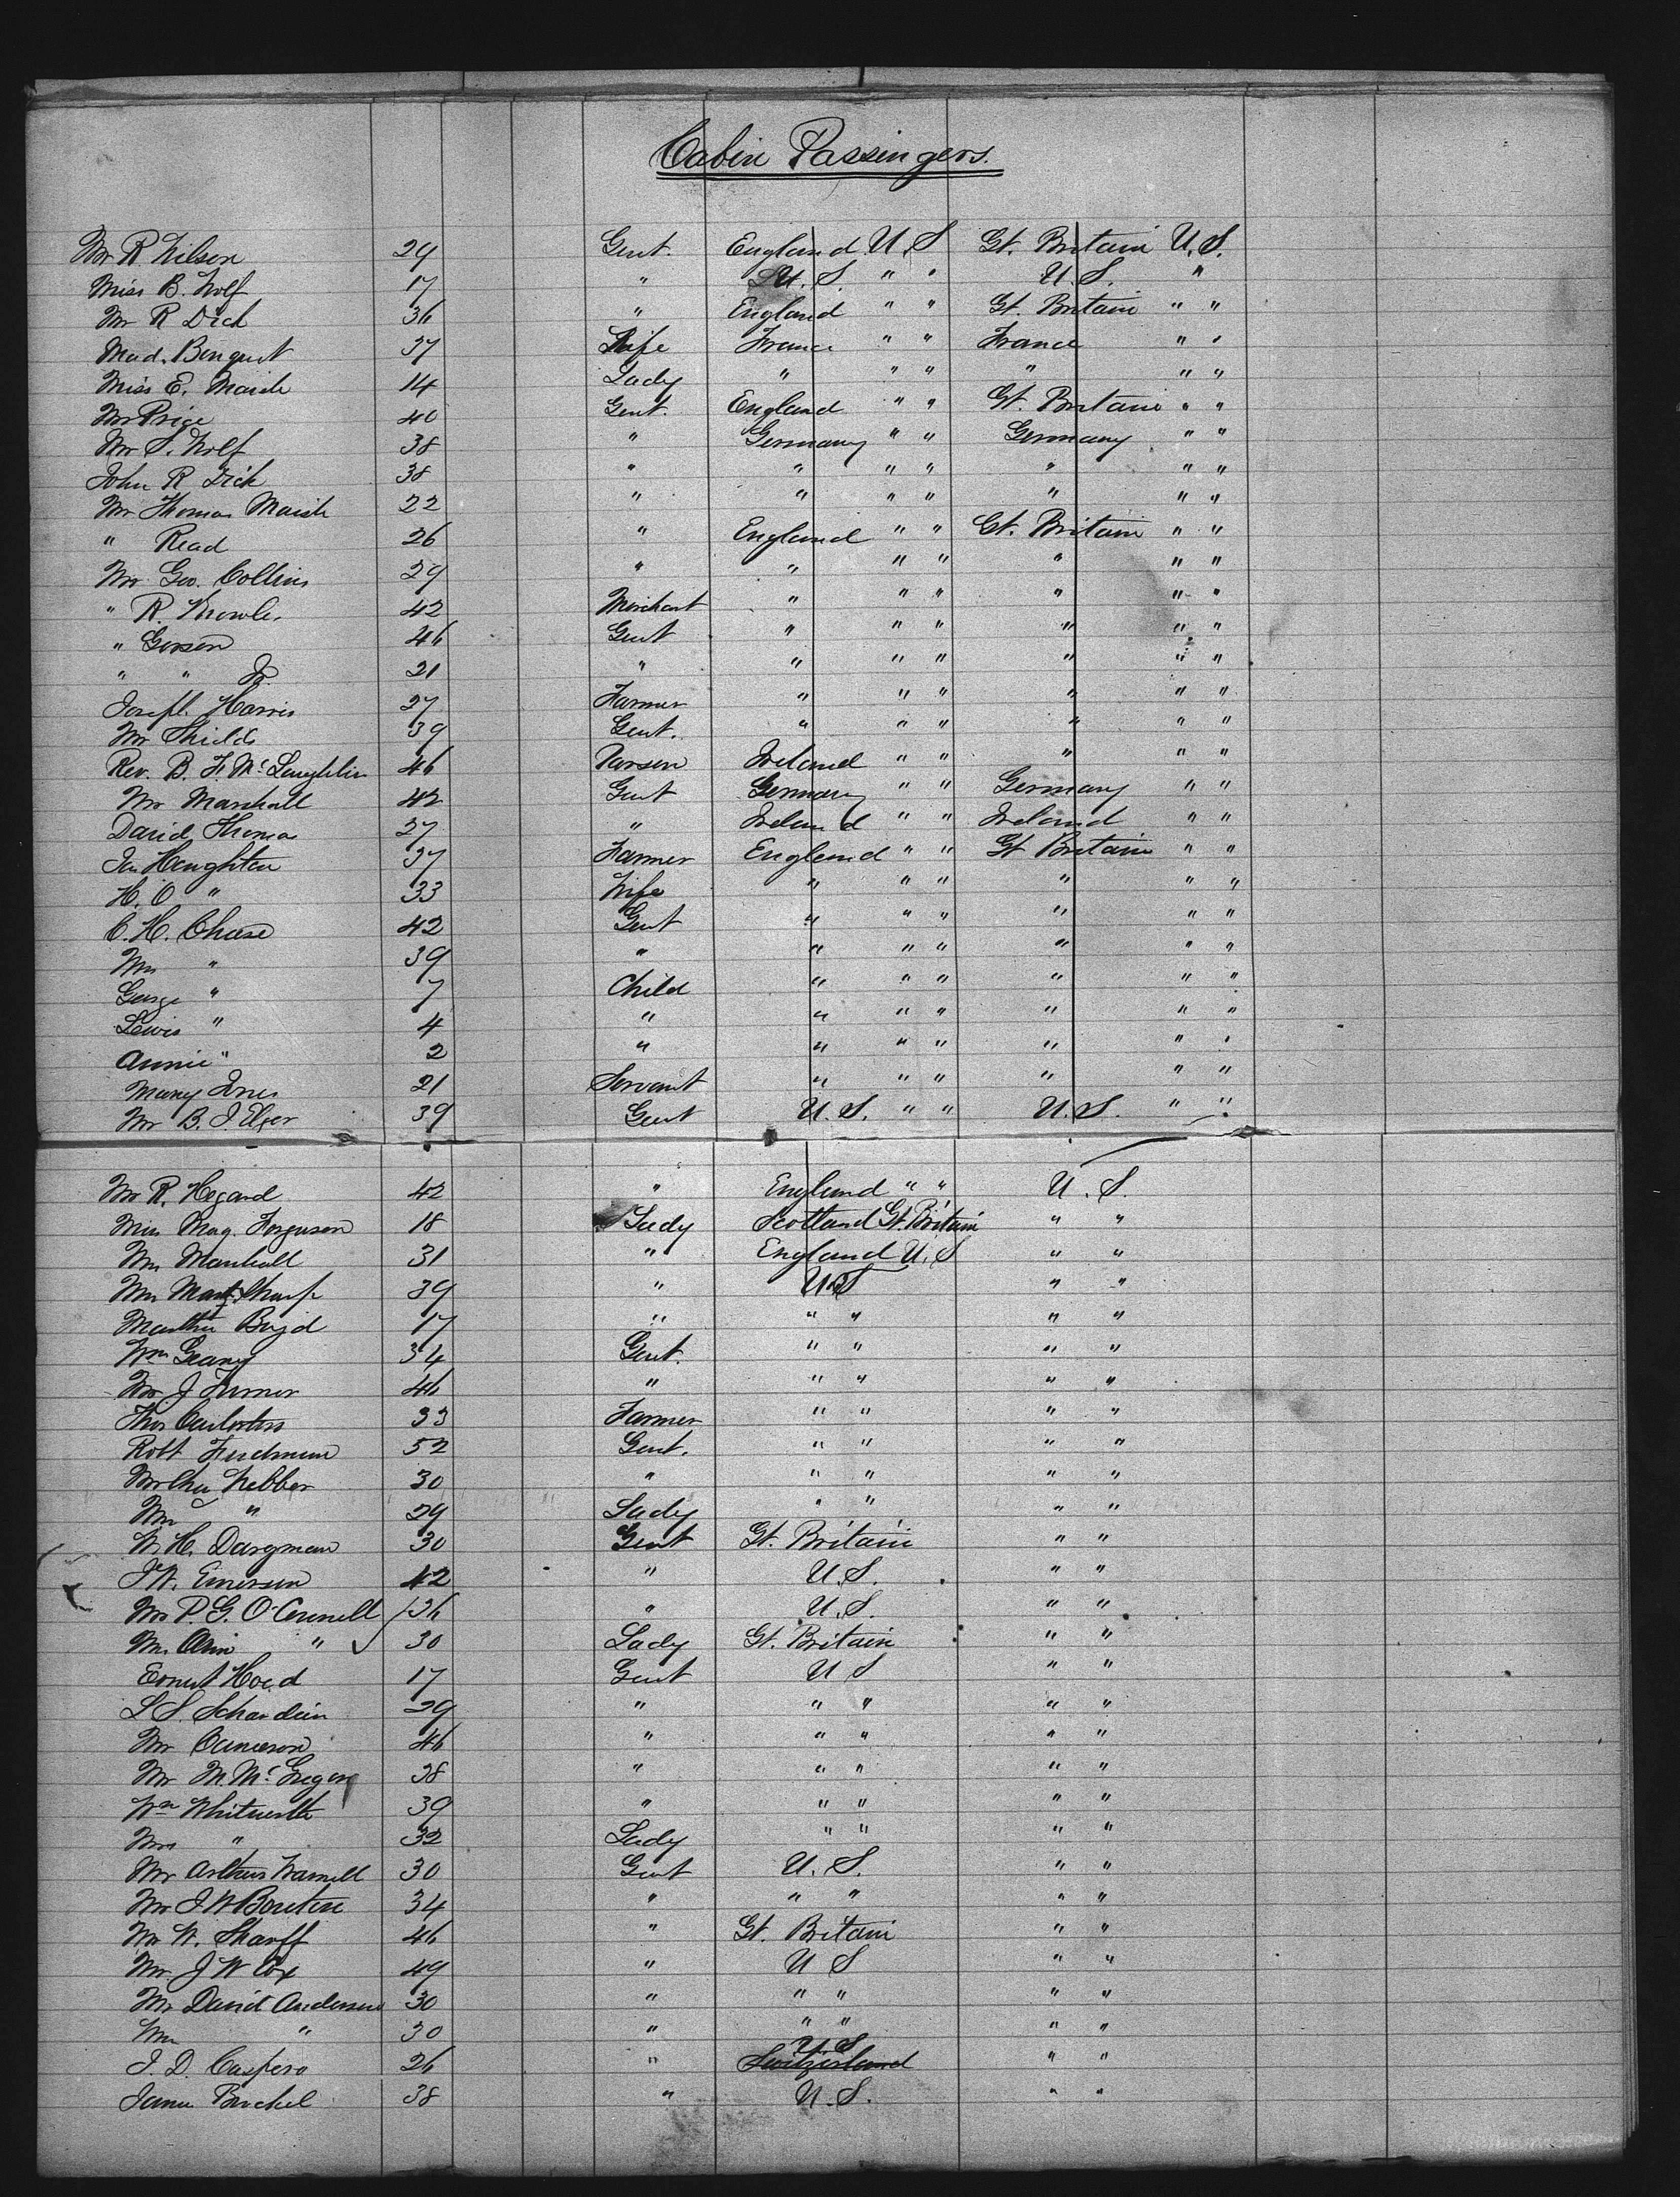 Cabin Passingers.
Mr R. Wilson 29 Gent. England U.S Gt. Britain U.S.
Miss B. Wolf 17 " U.S. " " U.S. "
Mr R Dick 36 " England " " Gt. Britain " "
Mad. 37 Wife France " " France " "
Miss E. Marsh 14 Lady " " " " " "
Mr Price 40 Gent. England " " Gt. Britain " "
Mr S. Wolf 38 " Germany " " Germany " "
John R Dick 38 " " " " " " "
Mr Thomas Marsh 22 " " " " " " "
" Read 26 " England " " Gt. Britain " "
Mr Geo. Collins 29 " " " " " " "
" R. 42 Merchant " " " " " "
" 46 Gent " " " " " "
" " Jr. 21 " " " " " " "
Joseph Harris 27 Farmer " " " " " "
Mr Shields 39 Gent. " " " " " "
Rev. B. F. Mc Laughlin 46 Parson Ireland " " " " "
Mr Marshall 42 Gent Germany " " Germany " "
David Thomas 27 " Ireland " " Ireland " "
Haughton 37 Farmer England " " Gt Britain " "
H. O " 33 Wife " " " " " "
C. H. Cheese 42 Gent " " " " " "
Mrs " 39 " " " " " " "
George " 7 Child " " " " " "
Lewis " 4 " " " " " " "
Annie " 2 " " " " " " "
Mary Jones 21 Servant " " " " " "
Mr B. J. 39 Gent U.S. " " U.S. " "
Mr R. Hegard 42 " England " " U.S.
Miss Mag. Ferguson 18 Lady Scotland Gt. Britain " "
Mrs Marshall 31 " England U.S " "
Mrs Sharp 39 " U.S " "
Martha Boyd 17 " " " " "
Wm Geany 34 Gent. " " " "
Mr J Turner 46 " " " " "
Thos 33 Farmer " " " "
Robt 52 Gent. " " " "
Mr Chas Webber 30 " " " " "
Mrs " 29 Lady " " " "
W. H. Dargman 30 Gent Gt. Britain " "
J W. Emerson 42 " U.S. " "
Mr P. G. O'Connell 36 " U.S. " "
Mrs Ann " 30 Lady Gt. Britain " "
Ernest Hoed 17 Gent U S " "
L S. Schardein 29 " " " " "
Mr Cameron 46 " " " " "
Mr M. Mc Gregor 38 " " " " "
Wm Whitworth 39 " " " " "
Mrs " 32 Lady " " " "
Mr Arthur Warnell 30 Gent U.S. " "
Mr J. W Bouten 34 " " " " "
Mr W. Sharff 46 " Gt. Britain " "
Mr J W Cox 49 " U S " "
Mr David Anderson 30 " " " " "
Mrs " 30 " " " " "
J. D. Caspero 26 " U.S Switzerland " "
38 " U.S. " "